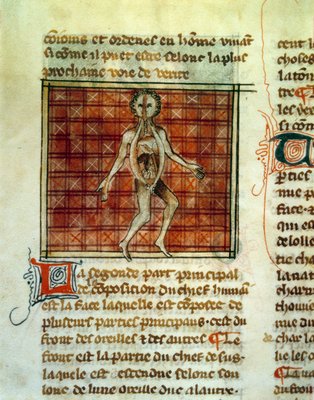 cōioins et ordenes en hōme viuāt
si cōme il puet estre selon la plus
prochaine voie de verite
La segonde part principal
de composition du chief humai
est la face laquelle est composee de
pluseurs parties principaus. cest du
front des oreilles et des autres ¶ Le
front est la partie du chief de sus.
laquele est estendue selonc son
lonc de lune oreille duc a lautre.
choses
la ton
tre
les ver
si cont
pties
nue p
face
de lolie
tie du
la nat
charn
nue pa
de char la